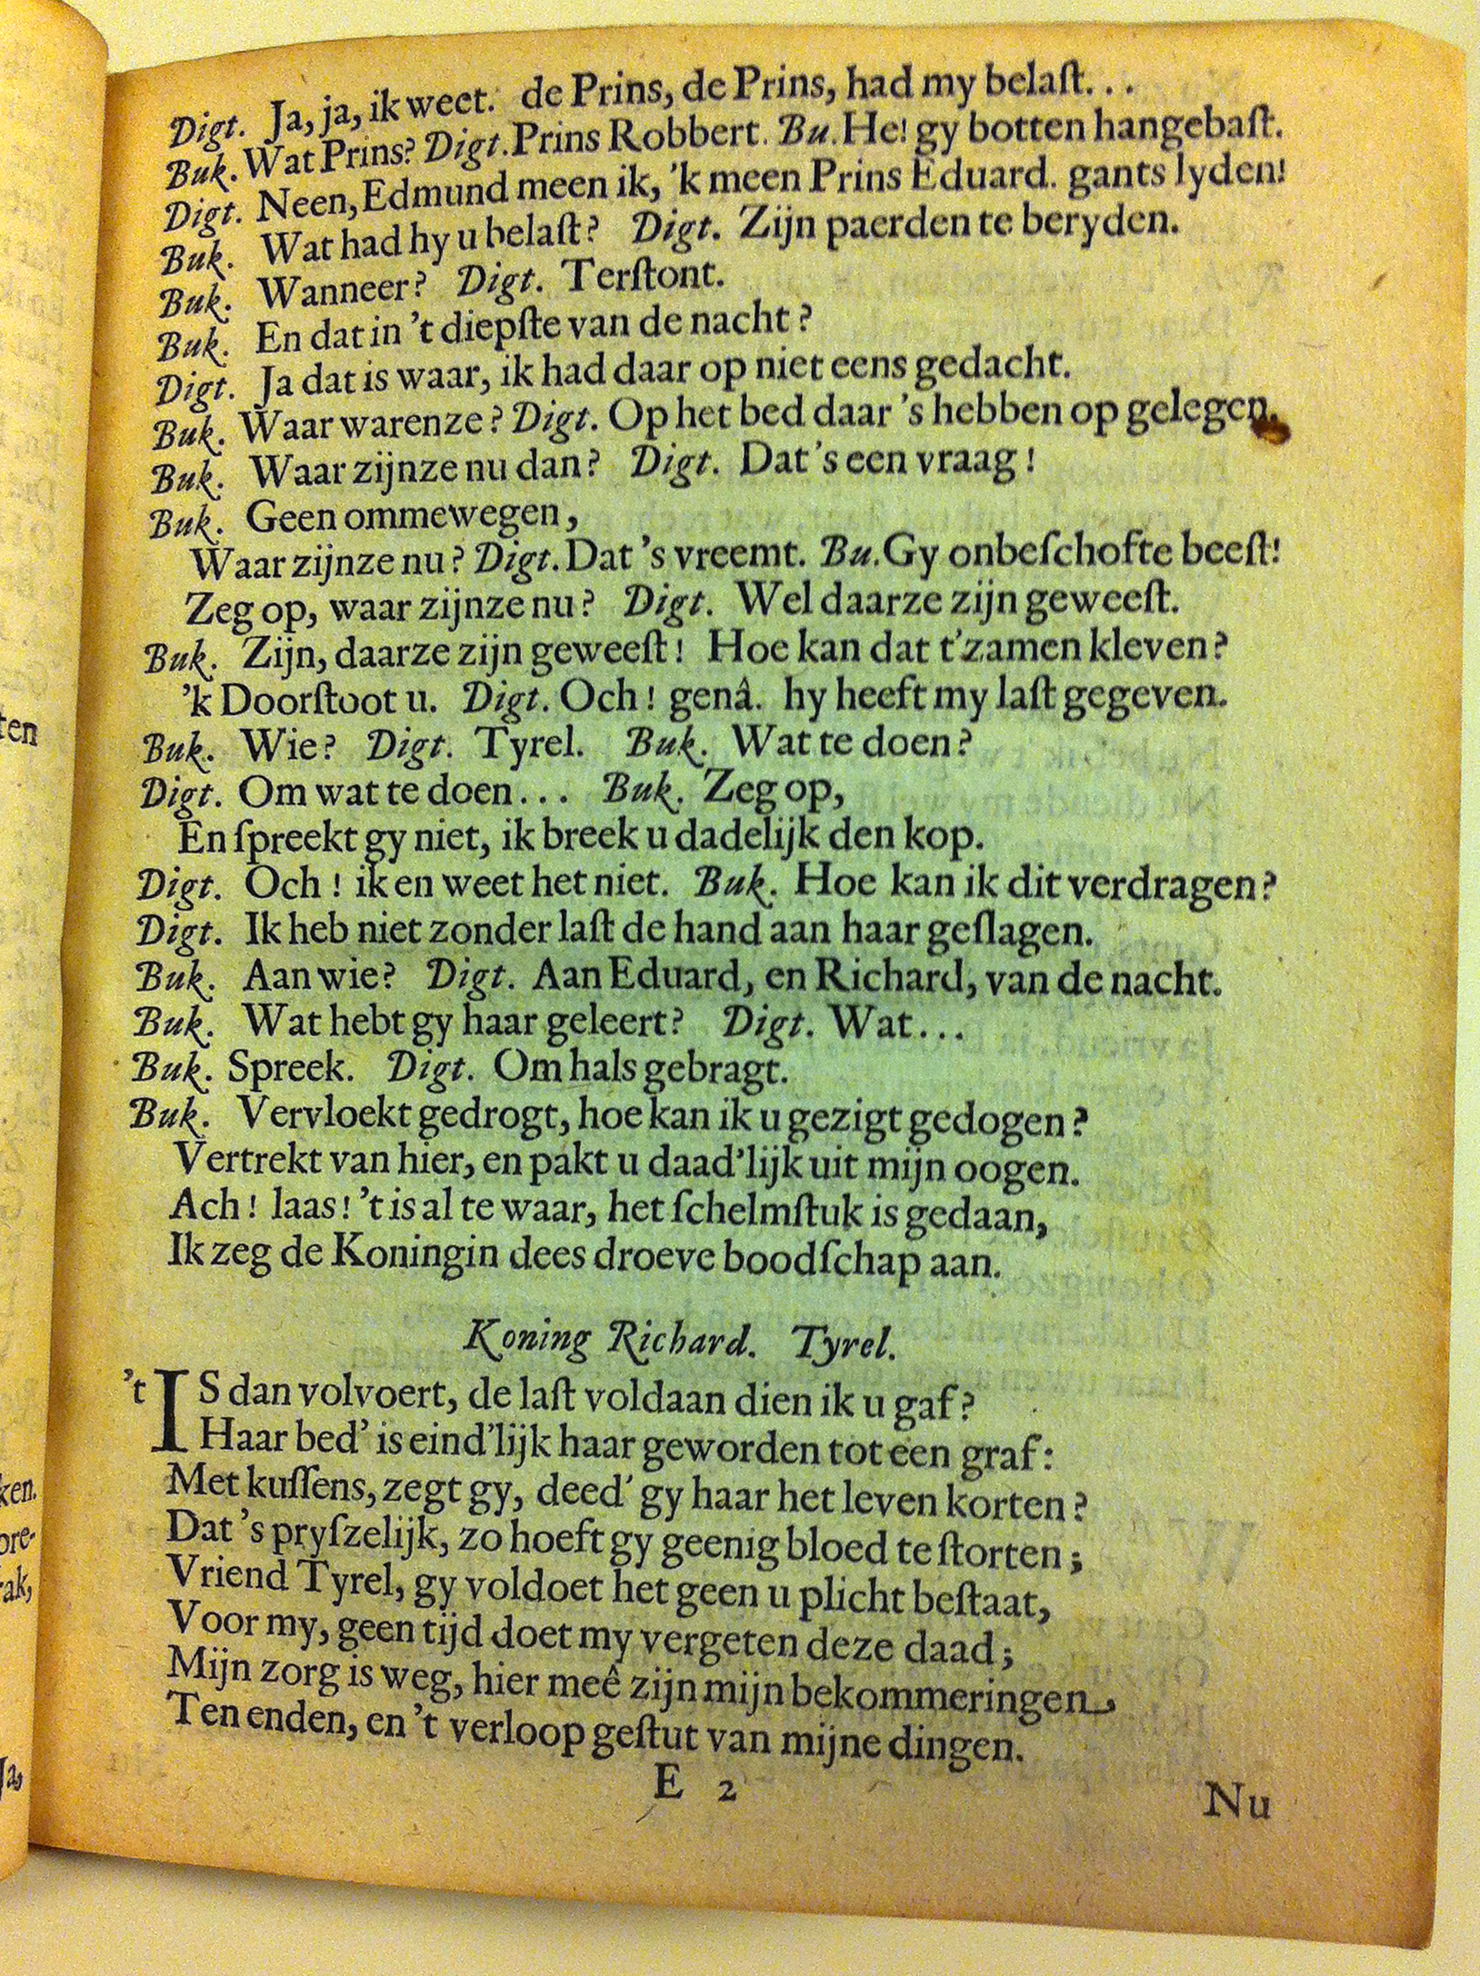 Digt. Ja, ja, ik weet. de Prins, de Prins, had my belaſt...
Buk. Wat Prins? Digt. Prins Robbert. Bu. He! gy botten hangebaſt.
Digt. Neen, Edmund meen ik, 'k meen Prins Eduard. gants lyden!
Buk. Wat had hy u belaſt? Digt. Zijn paerden te beryden.
Buk. Wanneer? Digt. Terſtont.
Buk. En dat in 't diepſte van de nacht?
Digt. Ja dat is waar, ik had daar op niet eens gedacht.
Buk. Waar warenze? Digt. Op het bed daar 's hebben op gelegen.
Buk. Waar zijnze nu dan? Digt. Dat 's een vraag!
Buk. Geen ommewegen,
Waar zijnze nu? Digt. Dat 's vreemt. Bu. Gy onbeſchofte beeſt!
Zeg op, waar zijnze nu? Digt. Wel daarze zijn geweeſt.
Buk. Zijn, daarze zijn geweeſt! Hoe kan dat t'zamen kleven?
'k Doorſtoot u. Digt. Och! genâ. hy heeft my laſt gegeven.
Buk. Wie? Digt. Tyrel. Buk. Wat te doen?
Digt. Om wat te doen... Buk. Zeg op,
En ſpreekt gy niet, ik breek u dadelijk den kop.
Digt. Och! ik en weet het niet. Buk. Hoe kan ik dit verdragen?
Digt. Ik heb niet zonder laſt de hand aan haar geſlagen.
Buk. Aan wie? Digt. Aan Eduard, en Richard, van de nacht.
Buk. Wat hebt gy haar geleert? Digt. Wat...
Buk. Spreek. Digt. Om hals gebragt.
Buk. Vervloekt gedrogt, hoe kan ik u gezigt gedogen?
Vertrekt van hier, en pakt u daad'lijk uit mijn oogen.
Ach! laas! 't is al te waar, het ſchelmſtuk is gedaan,
Ik zeg de Koningin dees droeve boodſchap aan.
Koning Richard. Tyrel.
't IS dan volvoert, de laſt voldaan dien ik u gaf?
Haar bed' is eind'lijk haar geworden tot een graf:
Met kuſſens, zegt gy, deed' gy haar het leven korten?
Dat 's pryſzelijk, zo hoeft gy geenig bloed te ſtorten;
Vriend Tyrel, gy voldoet het geen u plicht beſtaat,
Voor my, geen tijd doet my vergeten deze daad;
Mijn zorg is weg, hier meê zijn mijn bekommeringen,
Ten enden, en 't verloop geſtut van mijne dingen.
E 2
Nu